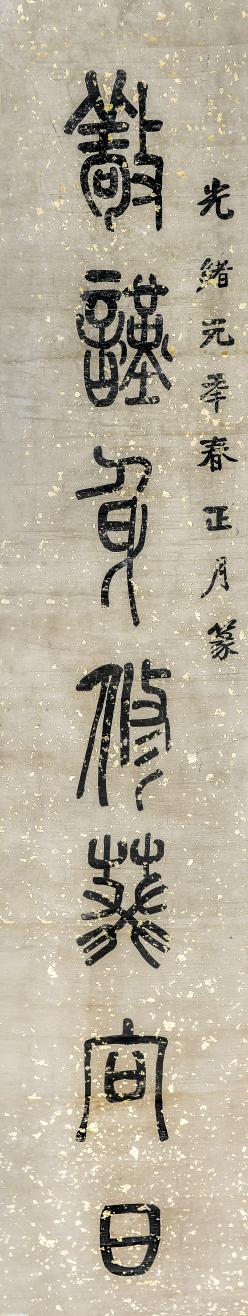 光緒元年春正月篆
敬謹身修葵向日